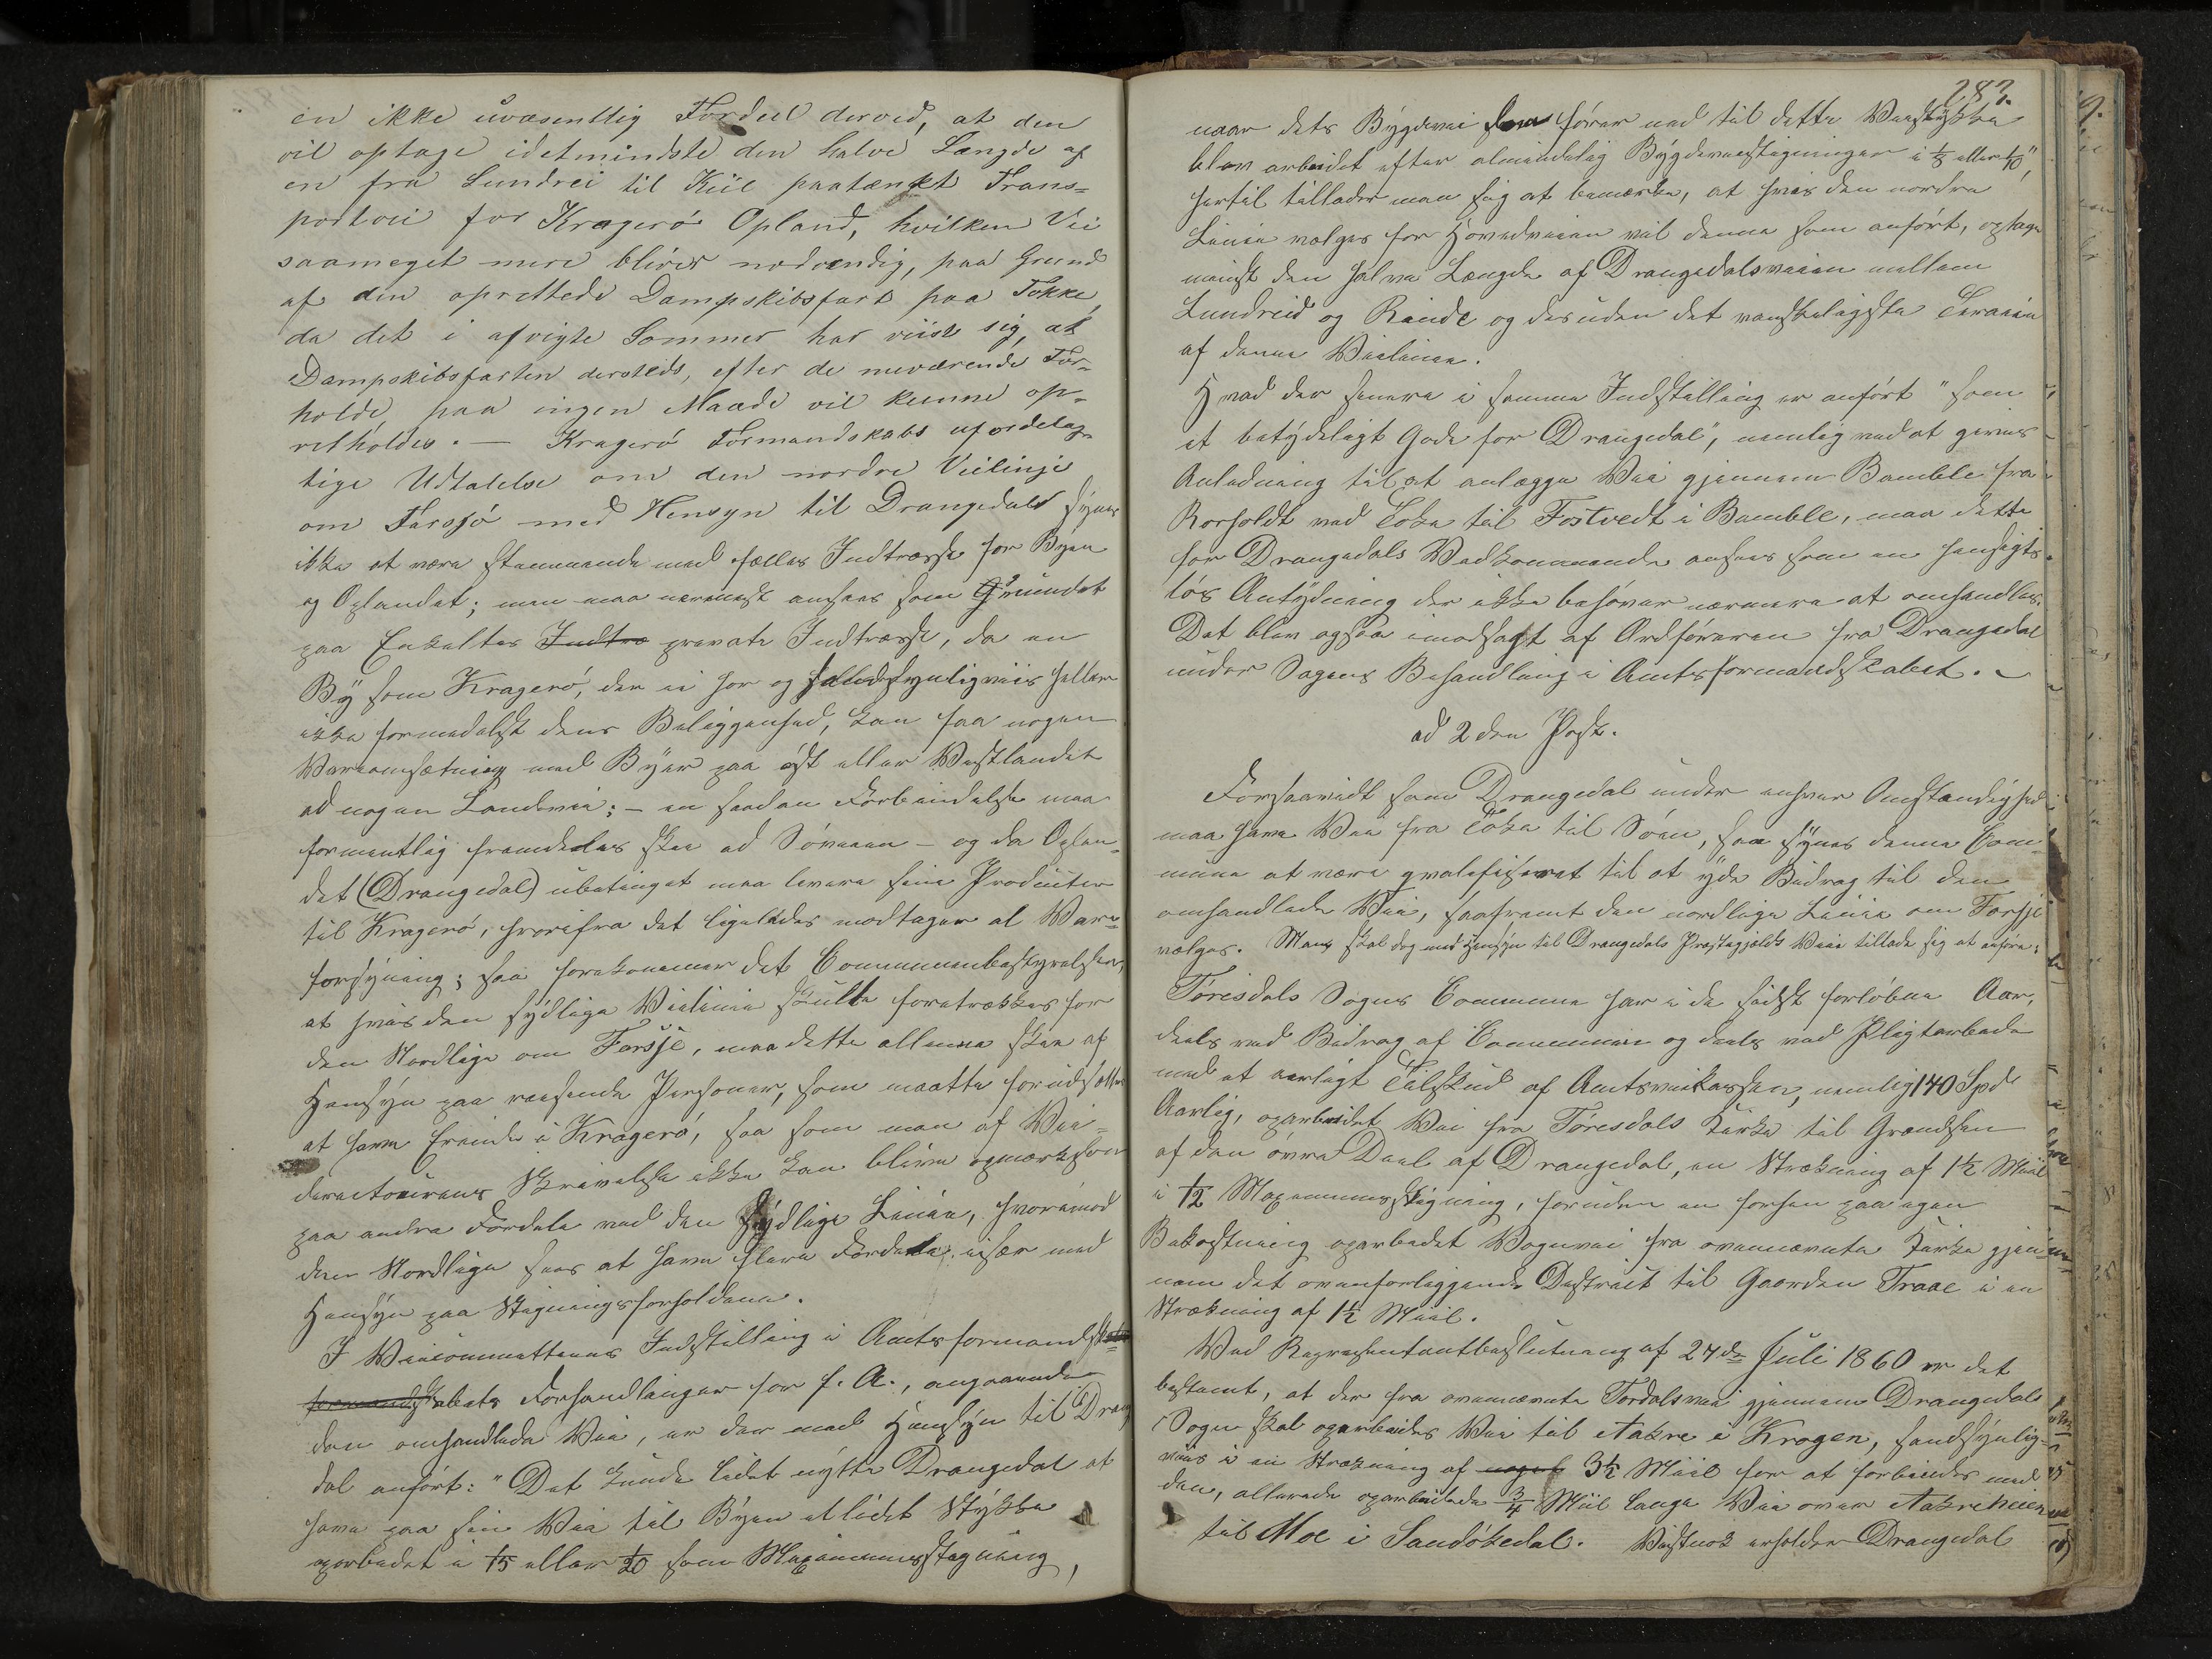 en ikke uvæsentlig Fordeel derved, at den
vil optage idetmindste den halve Længde af
en fra Lundrei til Kiil paatænkt Trans-
portvei for Kragerø Opland, hvilken Vei
saameget mere bliver nødvendig, paa Grund
af den oprettede Dampskibsfart paa Tokke,
da det i afvigte Sommer har viist sig, at
Dampskibsfarten dersteds, efter de nuværende For-
holde, paa ingen Maade vil kunne op-
retholdes. — Kragerø Formandskabs ufordelag-
tige Udtalelse om den nordre Veilinje
om Farsjø med Hensyn til Drangedal synes
ikke at være stemmende med fælles Indtræsse for Byen
og Oplandet; men maa nærmest ansees som Grundet
paa Enkeltes Indtræ private Indtræsse, da en
By som Kragerø, der ei har og sandsynligviis heller
ikke formedelst dens Beliggenhed, kan faa nogen
Vareomsætning med Byer paa øst eller Vestlandet
ad nogen Landevei; — en saadan Forbindelse maa
formentlig fremdeles skee ad Søveien — og da Oplan-
det (Drangedal) ubetinget maa levere sine Producter
til Kragerø, hvorifra det ligeledes modtager al Vare-
forsyning; saa forekommer det Communebestyrelsen,
at hvis den sydlige Veilinie skulle foretrækkes for
den Nordlige om Farsje, maa dette allene skee af
Hensyn paa reisende Personer, som maatte forudsættes
at have Erinde i Kragerø, saa som man af Vei-
directeurens Skrivelse ikke kan blive opmærksom
paa andre Fordele ved den sydlige Linie, hvorimod
den Nordlige sees at have flere Fordele især med
Hensyn paa Stigningsforholdene.
I Veicommitteens Indstilling i Amtsformandska-
formandskabets Forhandlinger for f. A., angaaende
den omhandlede Vei, er der med Hensyn til Drange
dal anført: "Det kunde lidet nytte Drangedal at
have paa sin Vei til Byen et lidet Stykke
oparbeidet i 1/15 eller 1/20 som Maximumsstigning,
283.
naar dets Bygdevei som fører ned til dette Veistykke
blev arbeidet efter almindelig Bygdeveistigninger i 1/8 eller 1/10",
hertil tillader man sig at bemærke, at hvis den nordre
Linie vælges for Hovedveien vil denne som anført, optage
mindst den halve Længde af Drangedalsveien mellem
Lundreid og Rinde og desuden det vanskeligste Terain
af denne Veilinie.
Hvad der senere i samme Indstilling er anført "som
et betydeligt Gode for Drangedal", nemlig ved at gives
Anledning til at anlægge Vei gjennem Bamble fra
Rorholdt ved Toke til Fostvedt i Bamble, maa dette
for Drangedals Vedkommende ansees som en hensigts-
løs Antydning der ikke behøver nærmere at omhandles.
Det blev ogsaa imodsagt af Ordføreren fra Drangedal
under Sagens Behandling i Amtsformandskabet. —
ad 2den Post.
Forsaavidt som Drangedal under enhver Omstændighed
maa have Vei fra Toke til Søen, saa synes denne Com-
mune at være qvalificeret til at yde Bidrag til den
omhandlede Vei, saafremt den nordlige Linie om Farsje
vælges. Man skal dog med Hensyn til Drangedals Præstegjælds Veie tillade sig at anføre:
Tørisdals Sogns Commune har i de sidst forløbne Aar,
deels ved Bidrag af Communen og deels ved Pligtarbeide
med et aarligt Tilskud af Amtsveikassen, nemlig 140 Spd
Aarlig, oparbeidet Vei fra Tøresdals Kirke til Grændsen
af den øvre Deel af Drangedal, en Strækning af 1 1/2 Miil
i 1/12 Maximumsstigning, foruden en forhen paa egen
Bekostning oparbeidet Vognvei fra ovennævnte Kirke gjen-
nem det ovenforliggende Distrikt til Gaarden Traae i en
Strækning af 1 1/2 Miil.
Ved Repræsentantbeslutning af 24de Juli 1860 er det
bestemt, at der fra ovennævnte Tørdalsvei gjennem Drangedals
Sogn skal oparbeides Vei til Aakre i Krogen, sandsynlig-
viis i en Strækning af 3 1/2 Miil for at forbindes med
den, allerede oparbeidede 3/4 Miil lange Vei over Aakreheien
til Moe i Sandøkedal. Vistnok erholder Drangedal